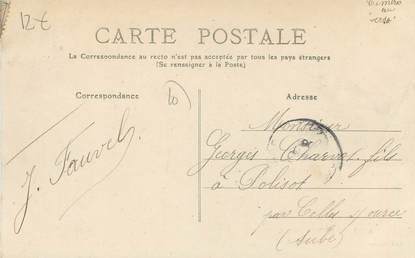 12€
Timbre
au
verso
CARTE POSTALE
La Correspondance au recto n'est pas acceptée par tous les pays étrangers
(Se renseigner à la Poste)
Correspondance
10
Adresse
J. Fauvel.
Monsieur
Georges Charvot fils
à Polisot
par Celles s/ ource
(Aube)